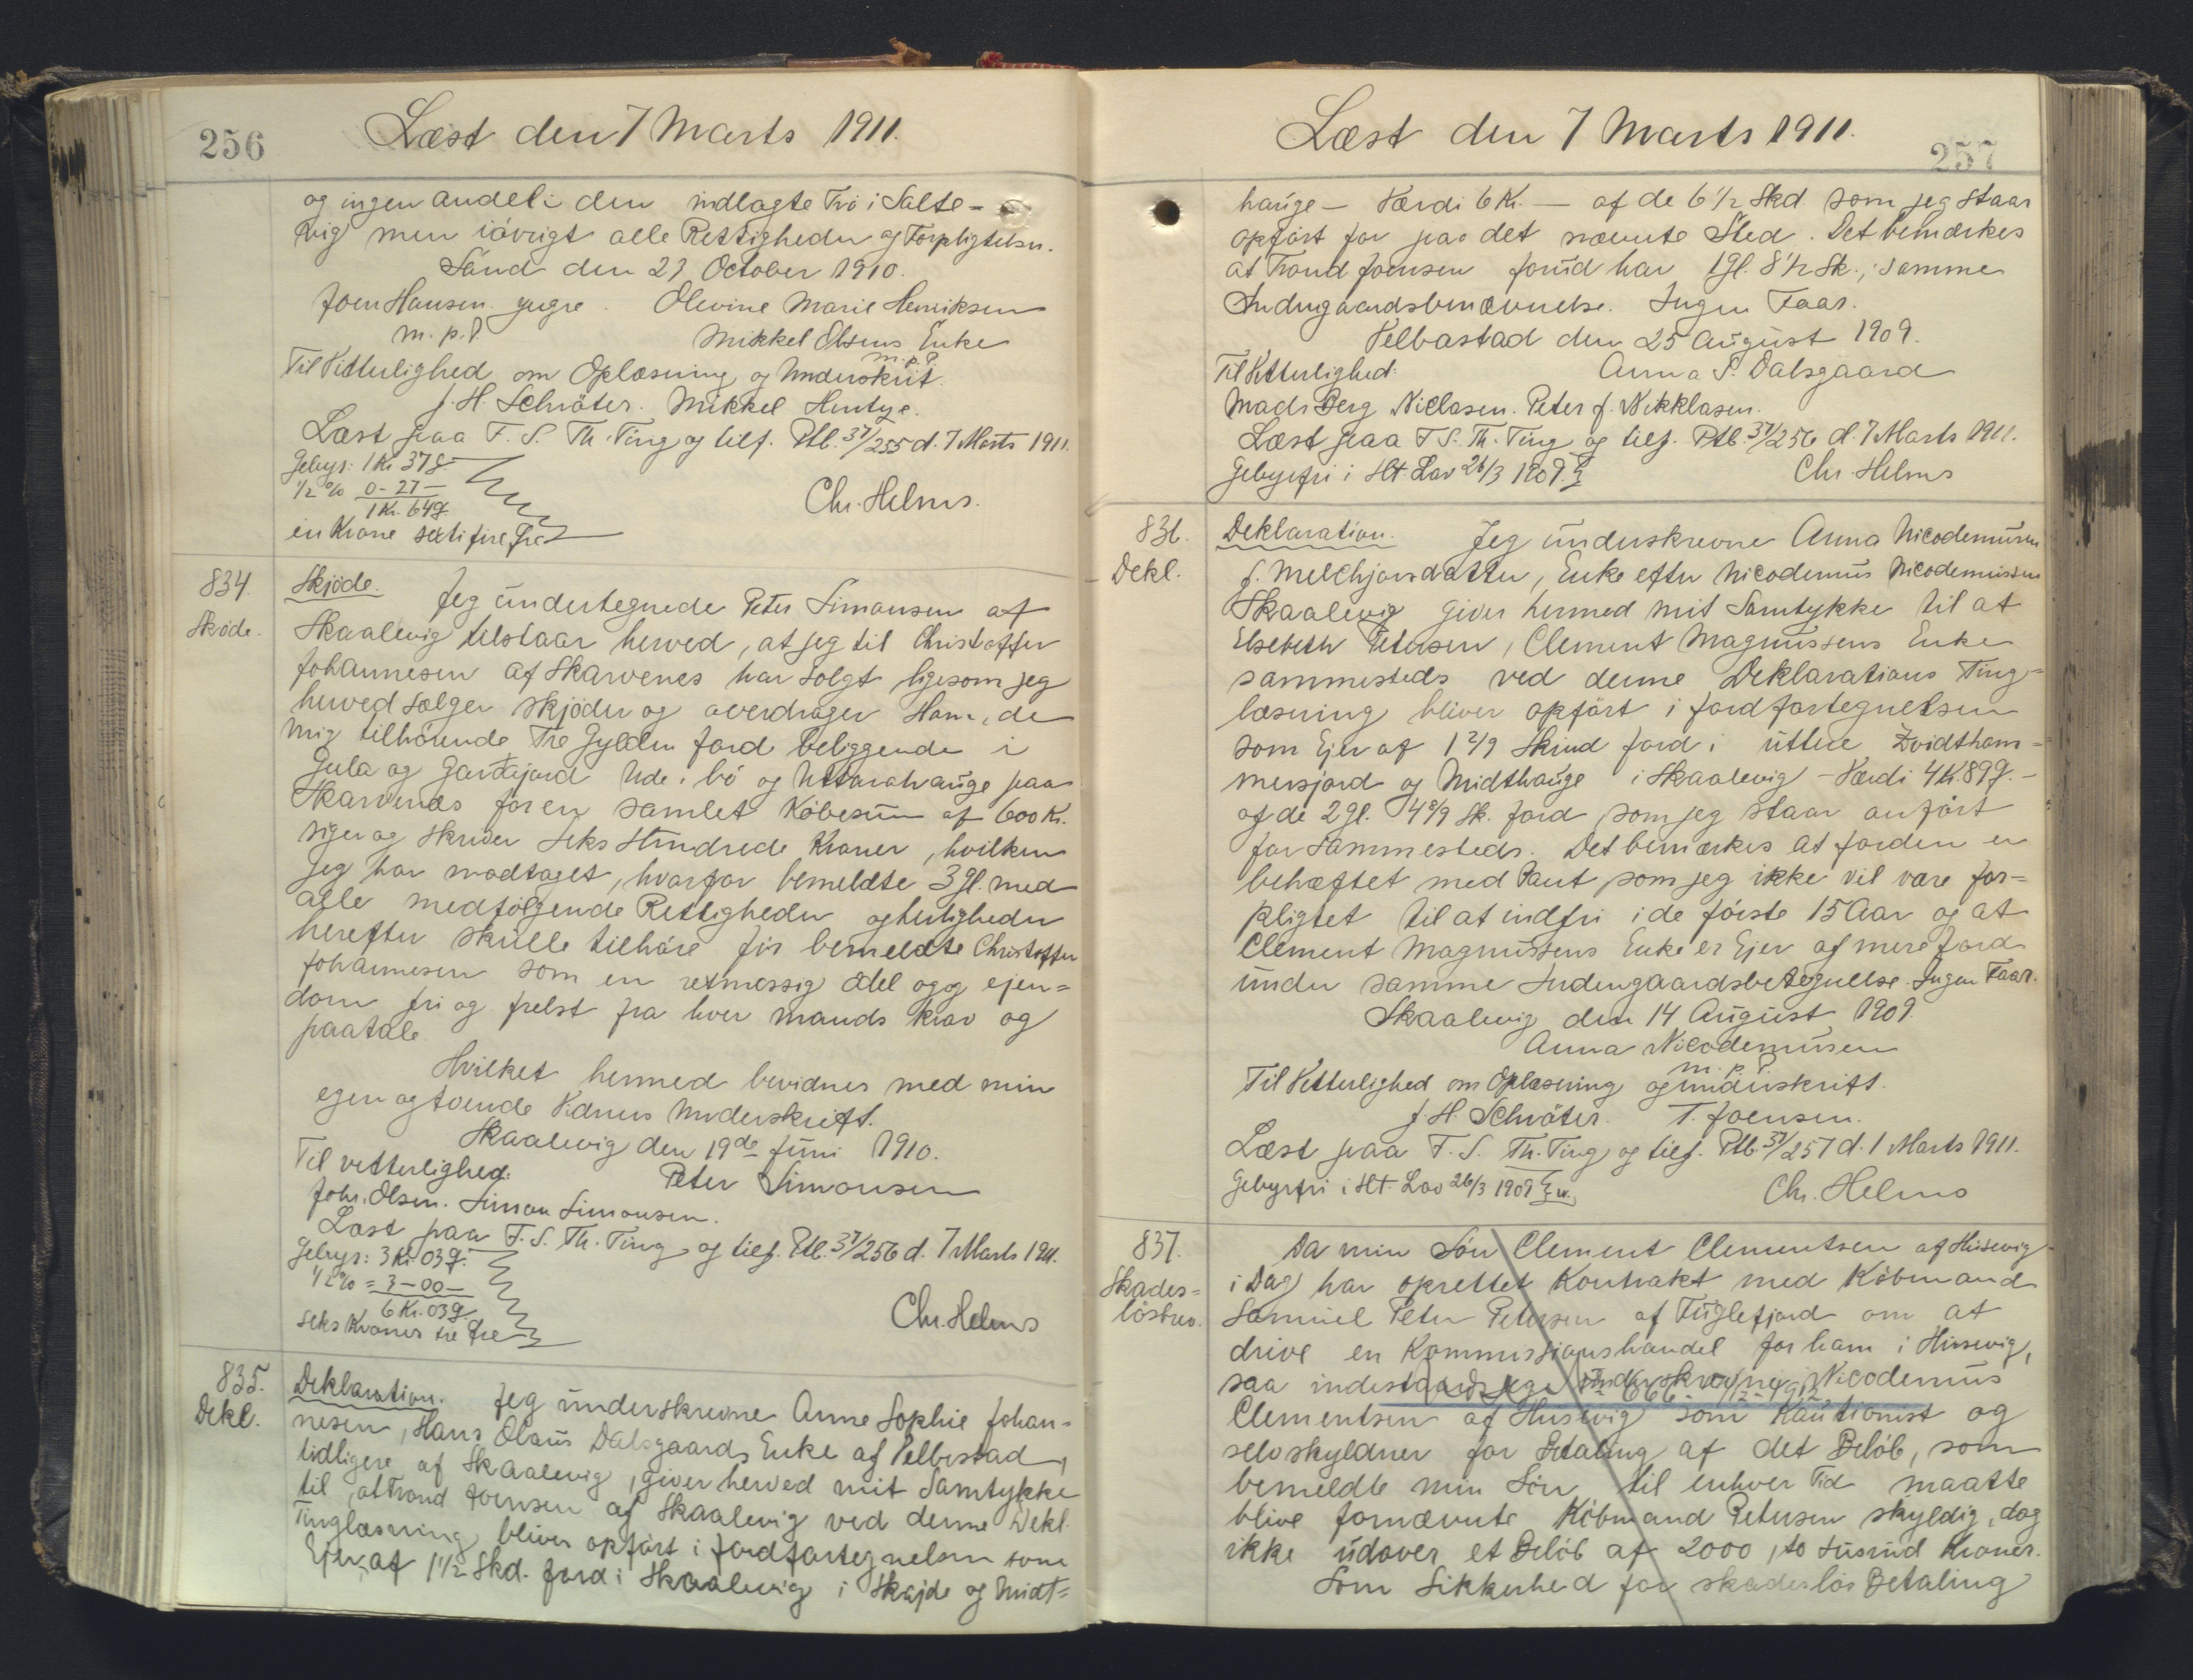 256
Læst den 7 Marts 1911.
og ingen Andel i den indlagte Trö i Salte-
vig men iövrigt alle Rettigheder og Forpligtelser.
Sand den 23 October 1910.
Joen Hansen yngre. Olevine Marie Henriksen
m. p. P. Mikkel Olsens Enke
m. p. P.
Til Vitterlighed om Oplæsning og Underskrit.
J. H. Schröter. Mikkel Hentze.
Læst paa F. S. Th. Ting og tilf. Ptb. 37/255 d. 7 Marts 1911.
Gebyr: 1 Kr. 37 ø
1/2 % 0 - 27 —
1 Kr. 64 ø
en Krone sexti fire Øre
Chr. Helms.
834.
Sköde.
Skjöde. Jeg undertegnede Peter Simonsen af
Skaalevig tilstaar herved, at jeg til Christoffer
Johannesen af Skarvenes har solgt ligesom jeg
herved sælger skjöder og overdrager Ham, de
mig tilhörende Tre Gylden Jord beliggende i
Gula og Gardajord Ude i bö og Uttarahauge paa
Skarvenæs for en samlet Köbesum af 600 Kr.
siger og skriver Seks Hundrede Kroner, hvilken
Jeg har modtaget, hvorfor bemeldte 3 gl. med
alle medfölgende Rettigheder og herligheder
herefter skulle tilhöre för bemeldte Christoffer
Johannesen som en retmessig Odel og ejen=
dom fri og frelst fra hver mands krav og
paatale.
Hvilket hermed bevidnes med min
egen og tvende Vidners Underskrift.
Skaalevig den 19de Juni 1910.
Til vitterlighed: Peter Simonsen
Johs. Olsen. Simon Simonsen.
Læst paa F. S. Th. Ting og tilf. Ptb. 37/256 d. 7 Marts 1911.
Gebyr: 3 Kr. 03 ø.
1/2 % = 3 - 00 —
6 Kr. 03 ø.
seks Kroner tre Øre
Chr. Helms
835.
Dekl.
Deklaration. Jeg underskrevne Anne Sophie Johan-
nesen, Hans Olaus Dalsgaards Enke af Velbestad,
tidligere af Skaalevig, giver herved mit Samtykke
til, at Trond Joensen af Skaalevig ved denne Dekl.
Tinglæsning bliver opfört i Jordfortegnelsen som
Ejer af 1 1/2 Skd. Jord i Skaalevig i Skajde og Midt=
257
Læst den 7 Marts 1911.
hauge — Værdi 6 Kr. — af de 6 1/2 Skd. som jeg staar
opfört for paa det nævnte Sted. Det bemærkes
at Trond Joensen forud har 1 gl. 8 1/2 Sk. i samme
Indngaardsbenævnelse. Ingen Faar.
Velbastad den 25 August 1909.
Til Vitterlighed: Anna S. Dalsgaard
Mads Berg Niclasen. Peter J. Nikklasen.
Læst paa F. S. Th. Ting og tilf. Ptb. 37/256 d. 7 Marts 1911.
Gebyrfri i Ht. Lov 26/3 1909. Chr. Helms
836.
Dekl.
Deklaration. Jeg underskrevne Anna Nicodemusen
f. Melchjorsdatter, Enke efter Nicodemus Nicodemussen
Skaalevig giver hermed mit Samtykke til at
Elsebeth Petersen, Clement Magnussens Enke
sammesteds ved denne Deklarations Ting=
læsning bliver opfört i Jordfortegnelsen
som Ejer af 1 2/9 Skind Jord i uttere Dvidtham=
mersjord og Midthauge i Skaalevig - Værdi 4 Kr. 89 ø. -
af de 2 gl. 4 8/9 Sk. Jord, som jeg staar anfört
for sammesteds. Det bemærkes at Jorden er
behæftet med Pant som jeg ikke vil være for=
pligtet til at indfri i de förste 15 Aar og at
Clement Magnussens Enke er Ejer af mere Jord
under samme Indengaardsbetegnelse. Ingen Faar.
Skaalevig den 14 August 1909.
Anna Nicodemusen
m. p. P.
Til Vitterlighed om Oplæsning og underskrift.
J. H. Schröter. T. Joensen.
Læst paa F. S. Th. Ting og tilf. Ptb. 37/257 d. 7 Marts 1911.
Gebyrfri i Ht. Lov 26/3 1909 Chr. Helms
837.
Skades=
lösbrev.
Da min Sön Clement Clementsen af Husevig
i Dag har oprettet Kontrakt med Köbmand
Samuel Peter Petersen af Fuglefjord om at
drive en Kommissionshandel for ham i Husevig,
saa indestaar jeg underskrevne Nicodemus
Clementsen af Husevig som Kautionist og
selvskyldner for Betaling af det Belöb, som
bemeldte min Sön til enhver Tid maatte
blive fornævnte Köbmand Petersen skyldig, dog
ikke udover et Belöb af 2000, to tusind Kroner.
Som Sikkerhed for skadeslös Betaling